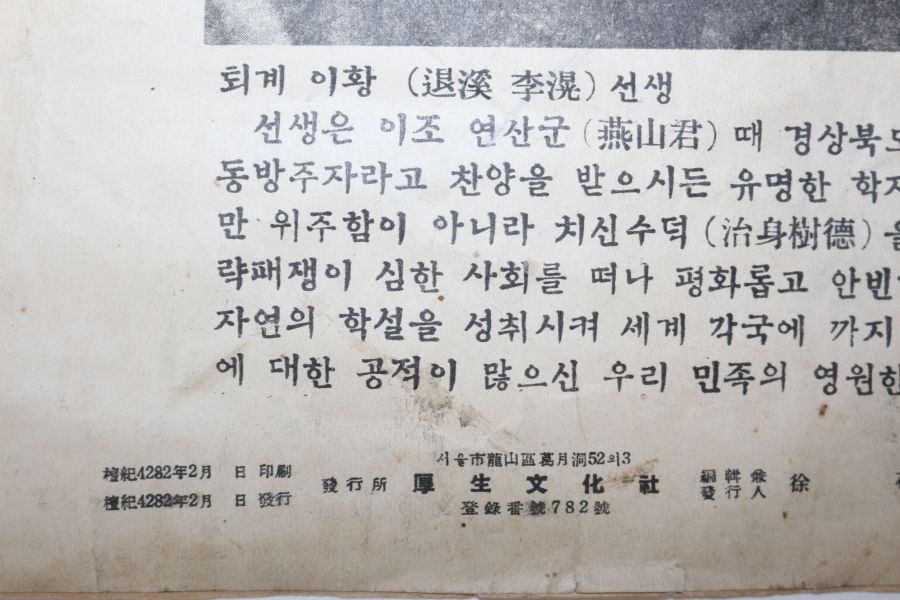 퇴계 이황 (退溪 李滉) 선생
선생은 이조 연산군 (燕山君) 때 경상북도
동방주자라고 찬양을 받으시든 유명한 학자
만 위주함이 아니라 치신수덕 (治身樹德) 을
략패쟁이 심한 사회를 떠나 평화롭고 안빈
자연의 학설을 성취시켜 세계 각국에 까지
에 대한 공적이 많으신 우리 민족의 영원한
檀紀4282年2月 日 印刷
檀紀4282年2月 日 發行
서울市龍山區葛月洞52의3
發行所 厚生文化社
登錄番號782號
編輯兼
發行人 徐